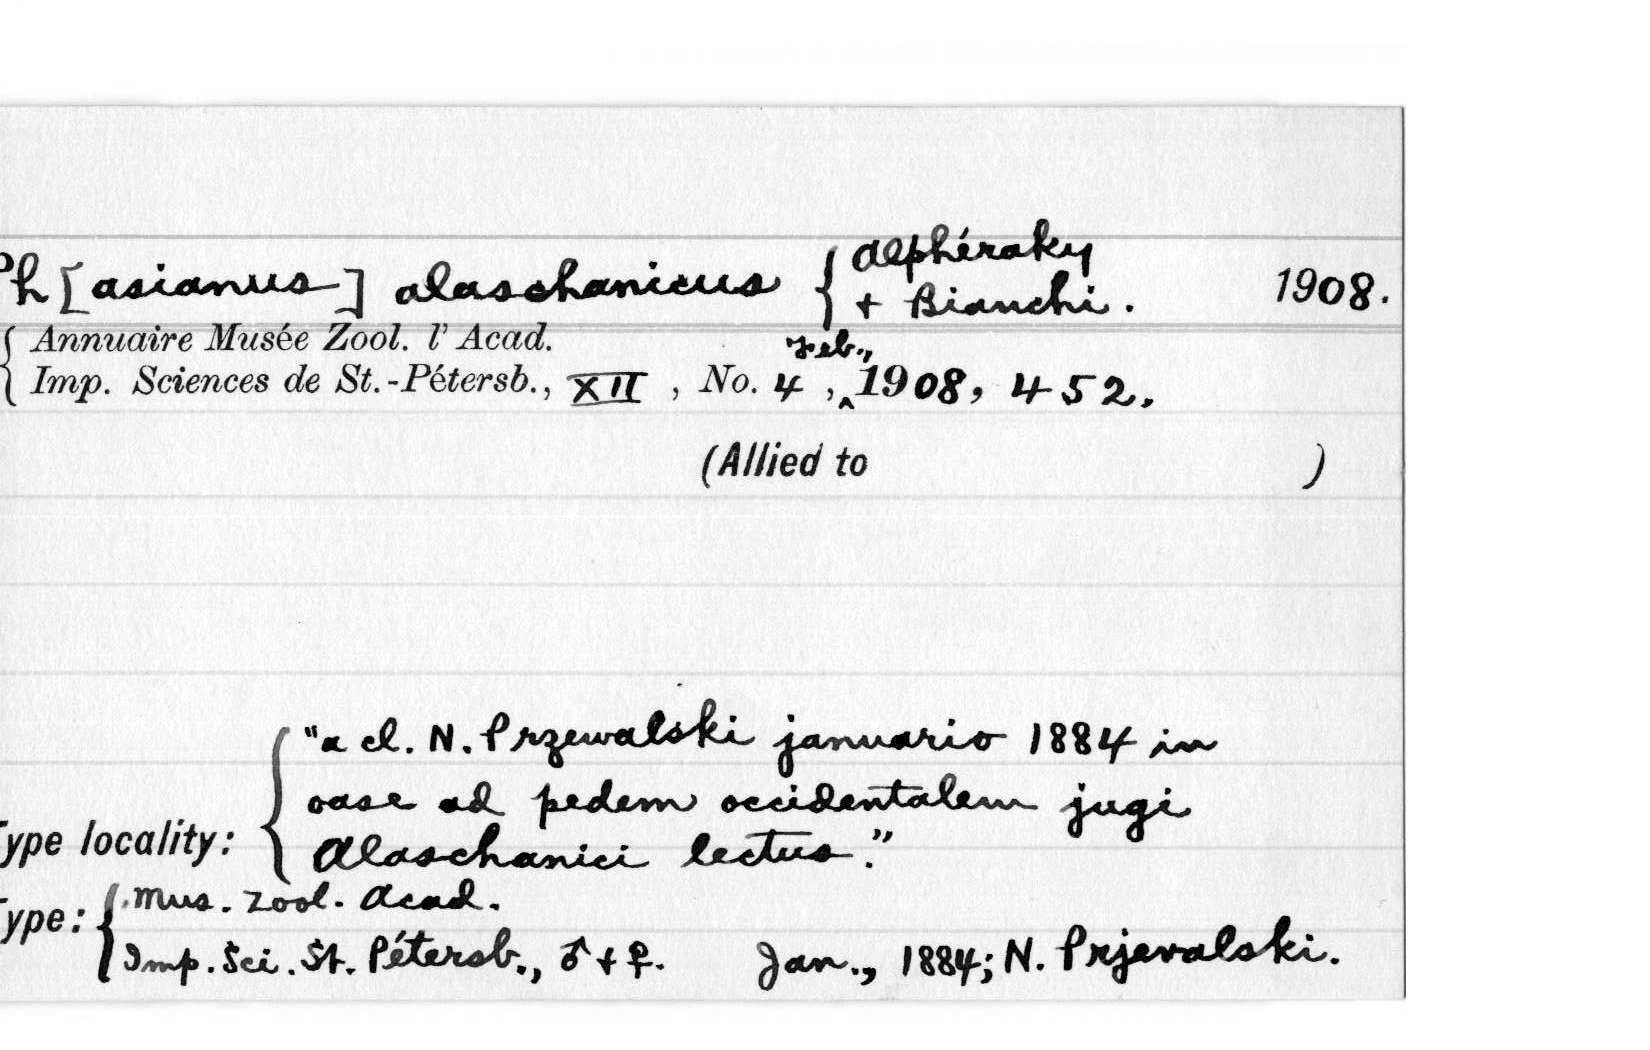 Ph[asianus] alaschanicus { Alphéraky
+ Bianchi. 1908.
{ Annuaire Musée Zool. l' Acad.
Imp. Sciences de St.-Pétersb., XII, No. 4, ‸Feb., 1908, 452.
(Allied to )
"a cl. N. Przewalski januario 1884 in
oase ad pedem occidentalem jugi
Type locality: { Alaschanici lectus."
Type: { Mus. Zool. Acad.
Imp. Sci. St. Pétersb., ♂ + ♀. Jan., 1884; N. Prjevalski.